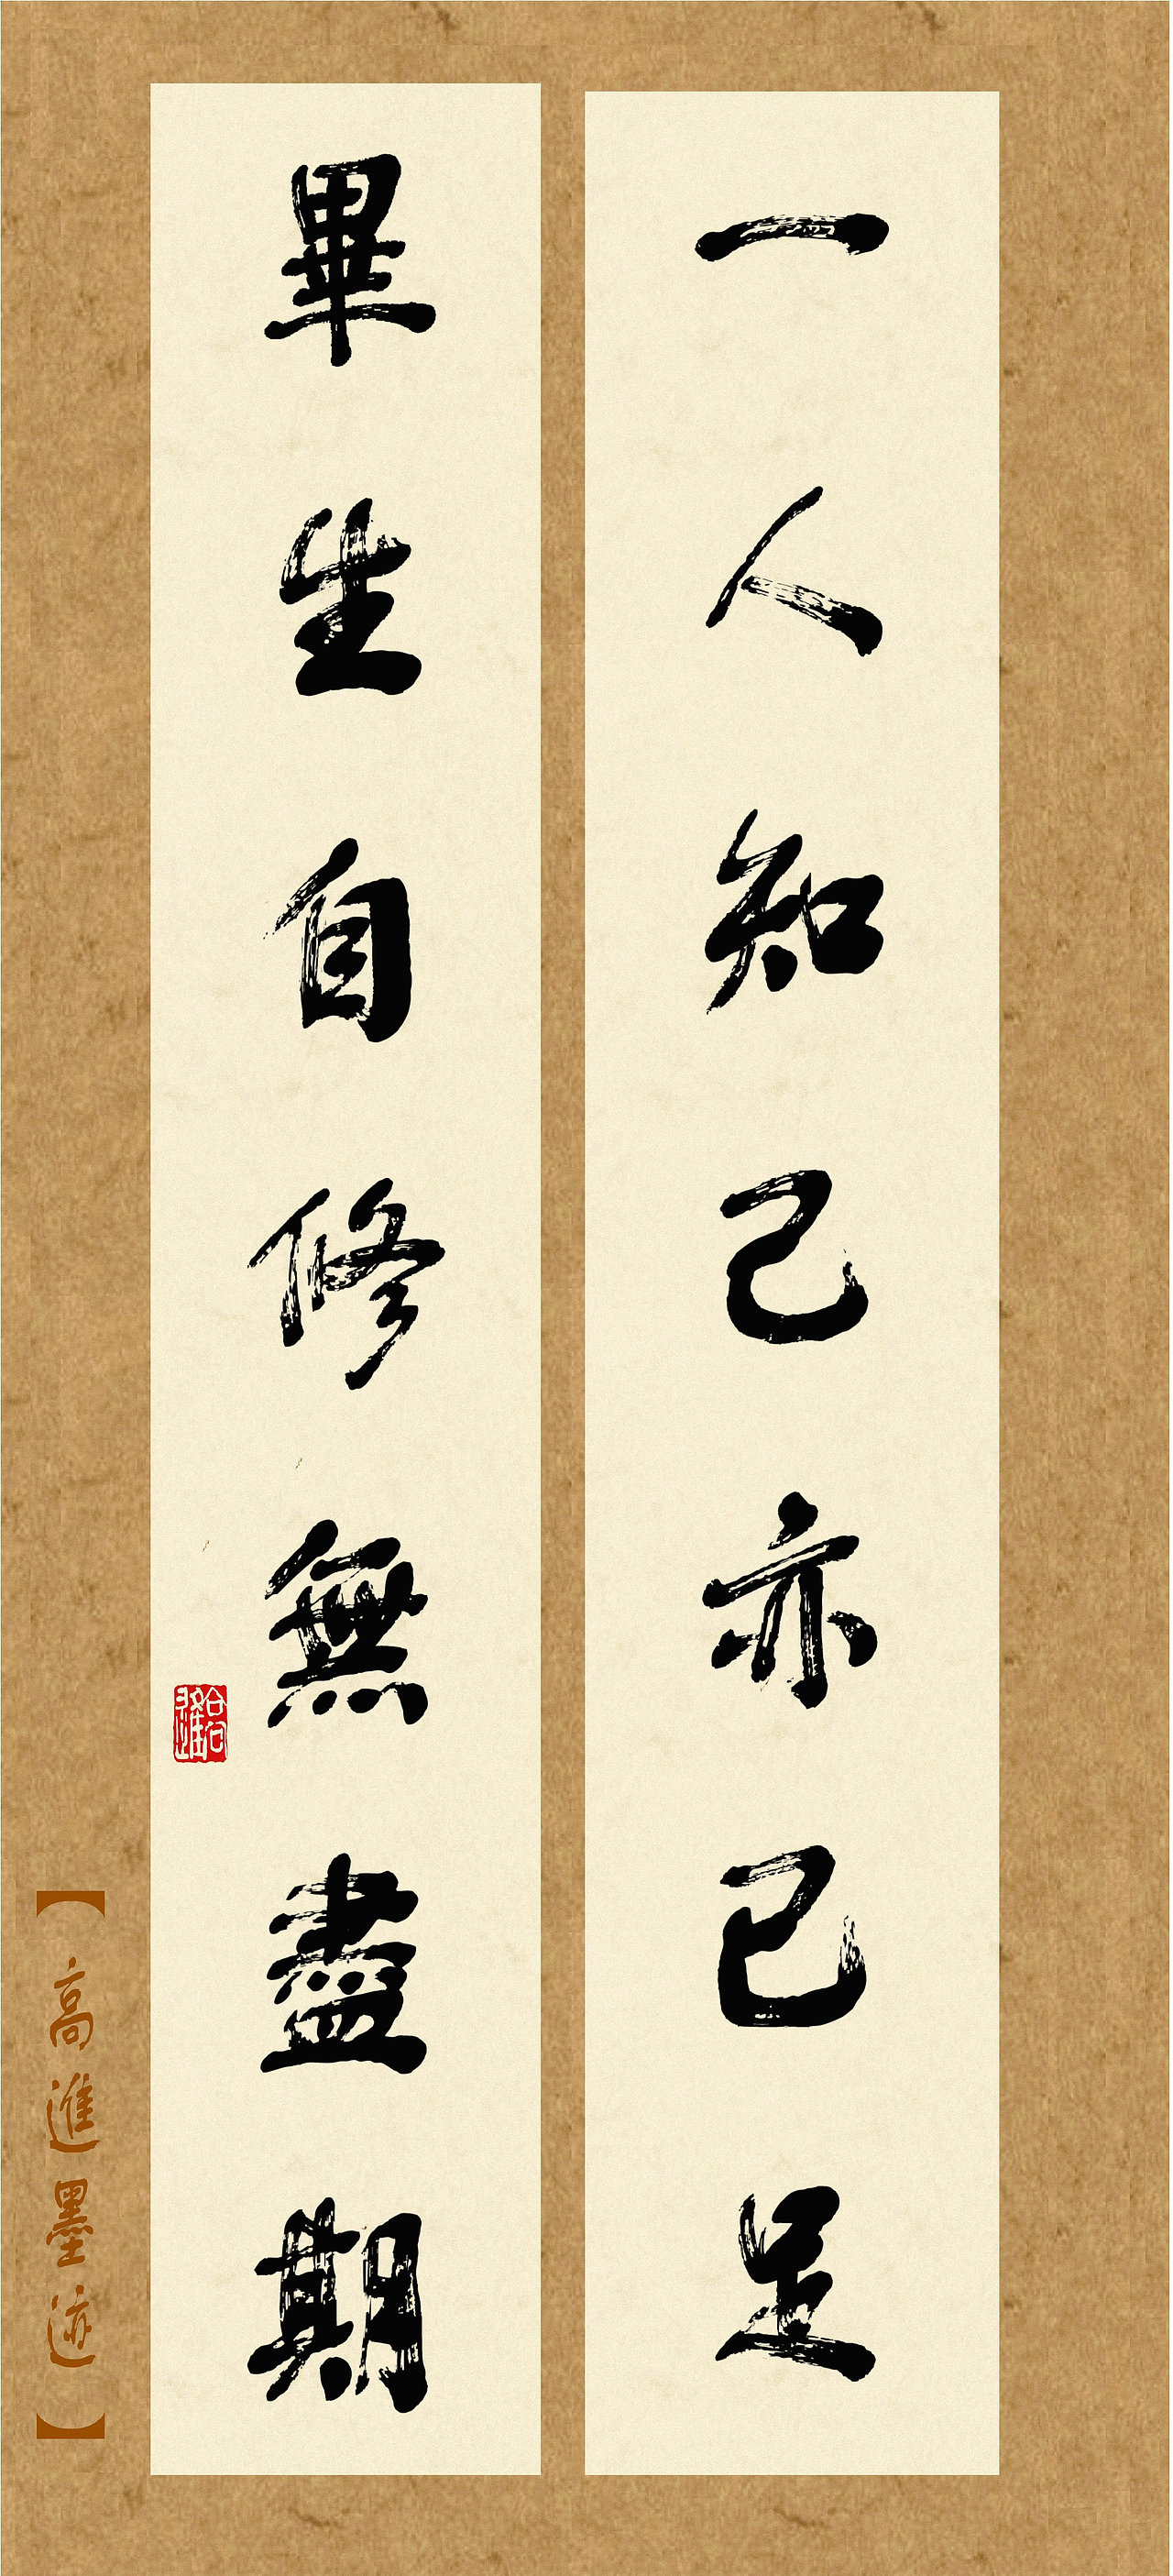 一人知己亦已足
畢生自修無盡期
【高進墨迹】